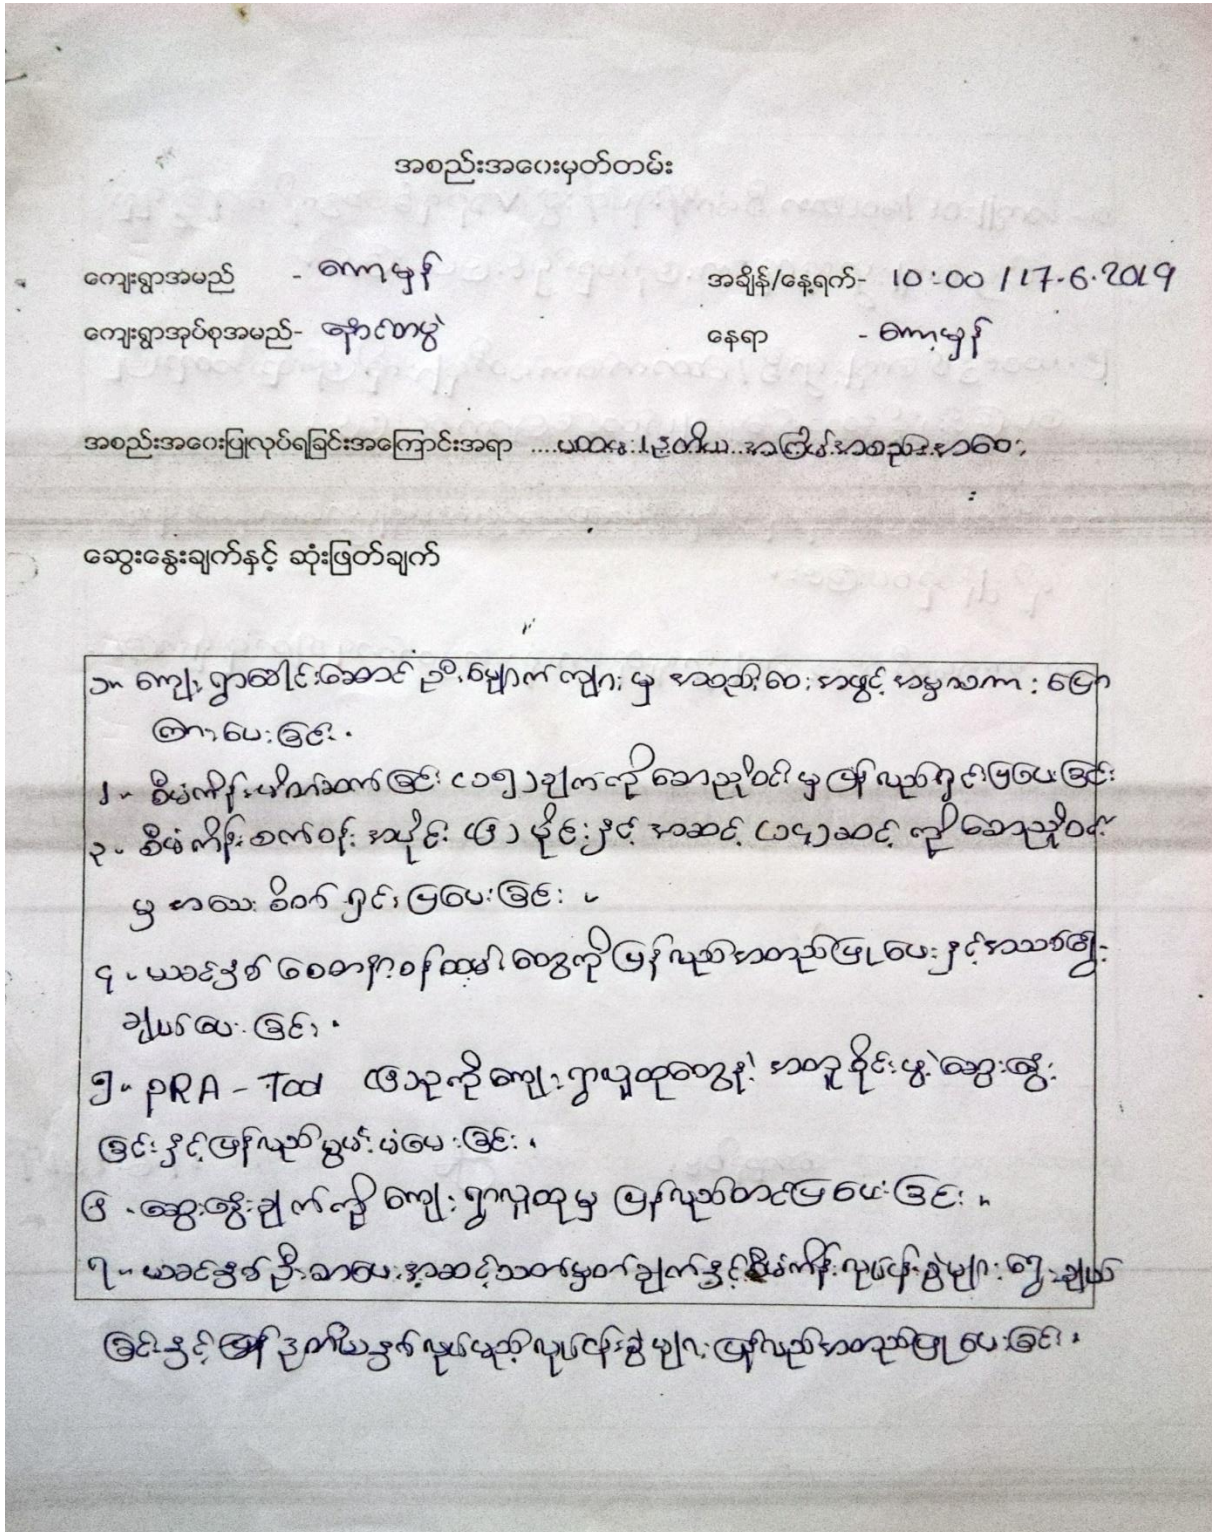 အစည်းအဝေးမှတ်တမ်း
ကျေးရွာအမည် - ကော့မှန် အချိန်/နေ့ရက်- 10:00 / 17.6.2019
ကျေးရွာအုပ်စုအမည်- နောင်တပွဲ နေရာ - ကော့မှန်
အစည်းအဝေးပြုလုပ်ရခြင်းအကြောင်းအရာ ....ပထမ၊ ဒုတိယ အကြိမ် အစည်းအဝေး
ဆွေးနွေးချက်နှင့် ဆုံးဖြတ်ချက်
၁။ ကျေးရွာခေါင်းဆောင် ဦး ကျား မှ အစည်းဝေး အဖွင့် အမှာစကား ပြော
ကြားပေးခြင်း။
၂။ စီမံကိန်းမိတ်ဆက်ခြင်း (၁၅)ချက်ကို သောညိုဝင်း မှ ပြန်လည်ရှင်းပြပေးခြင်း
၃။ စီမံကိန်းစက်ဝန်း အပိုင်း (၆) ပိုင်းနှင့် အဆင့် (၁၄)ဆင့် ကို သောညိုဝင်း
မှ အသေးစိတ် ရှင်းပြပေးခြင်း ။
၄။ ယခင်နှစ် စေတနာ့ဝန်ထမ်းတွေကို ပြန်လည်အတည်ပြုပေးနှင့်အသစ်ရွေး
ချယ်ပေးခြင်း။
၅။ PRA - Tool (၆)ခုကို ကျေးရွာလူထုတွေနဲ့ အတူ ဝိုင်းဖွဲ့ဆွေးနွေး
ခြင်းနှင့်ပြန်လည်စွမ်းပံ့ပေးခြင်း။
၆။ ဆွေးနွေးချက်ကို ကျေးရွာလူထုမှ ပြန်လည်တင်ပြပေးခြင်း။
၇။ ယခင်နှစ် ဦးစားပေးအဆင့်သတ်မှတ်ချက်နှင့်စီမံကိန်းလုပ်ငန်းခွဲများရွေးချယ်
ခြင်းနှင့် ဒုတိယနှစ်လုပ်မည့်လုပ်ငန်းခွဲများ ပြန်လည်အတည်ပြုပေးခြင်း။